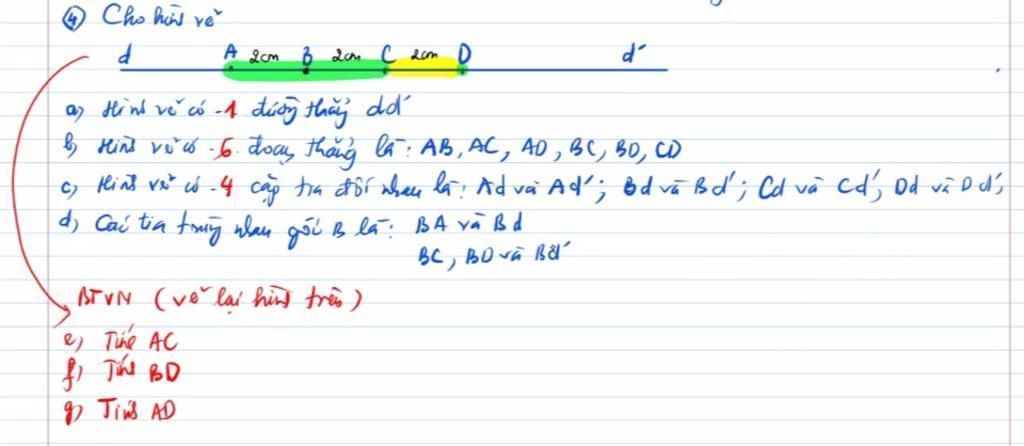 ④ Cho hình vẽ
d A 2cm B 2cm C 2cm D d'
a) Hình vẽ có 1 đường thẳng dd'
b) Hình vẽ có 6 đoạn thẳng là: AB, AC, AD, BC, BD, CD
c) Hình vẽ có 4 cặp tia đối nhau là: Ad và Ad'; Bd và Bd'; Cd và Cd'; Dd và Dd';
d) Các tia trùng nhau gốc B là: BA và Bd
BC, BD và Bd'
BTVN (vẽ lại hình trên)
e) Tính AC
f) Tính BD
g) Tính AD